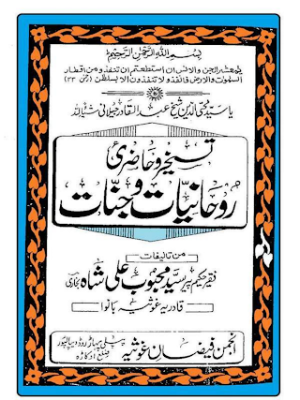 بِسْمِ اللهِ الرَّحْمٰنِ الرَّحِيْمِ
يٰمعشر الجن والانس ان استطعتم ان تنفذو من اقطار
السمٰوت والارض فانفذو لا تنفذون الا بسلطٰن
یا سید محی الدین شیخ عبد القادر جیلانی شیئاً للہ
تسخیر و حاضری
روحانیات و جنات
من تالیفات
فقیر حکیم پیر سید محبوب علی شاہ بخاری
قادریہ غوثیہ بانوا
انجمن فیضان غوثیہ
پہاڑ روڈ دیپالپور
ضلع اوکاڑہ